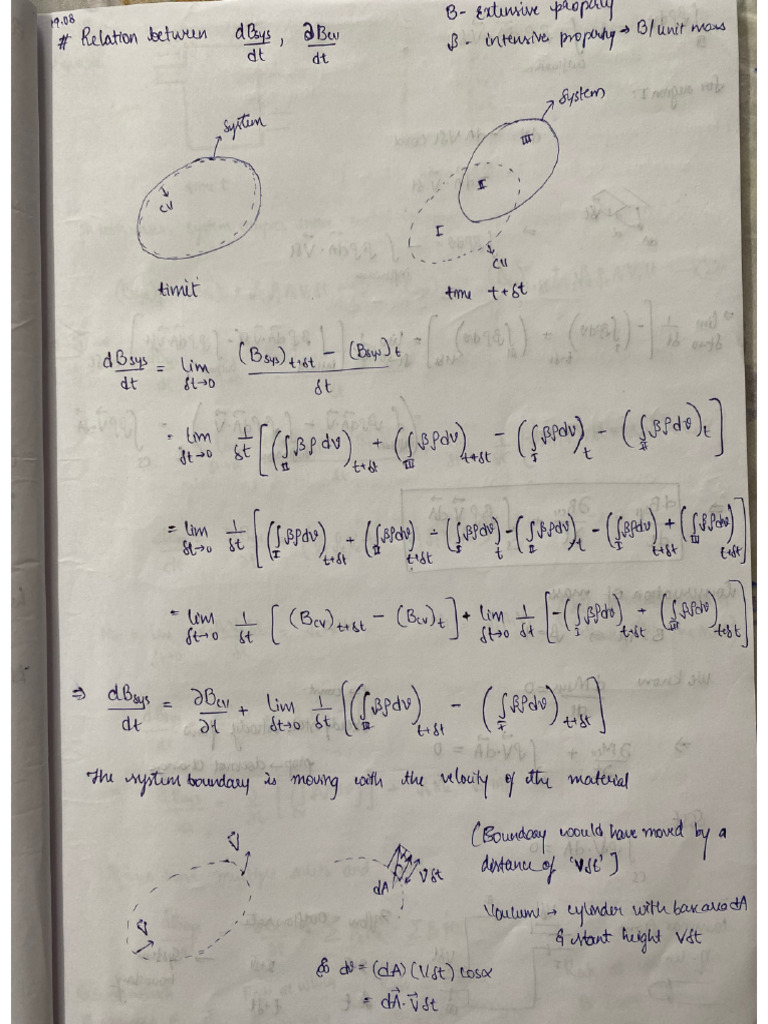 19.08
B - Extensive property
# Relation between dBsys/dt , ∂Bcv/dt
β - intensive property → B/unit mass
System
CV
time t
System
III
II
I
CV
time t+δt
dBsys/dt = lim δt→0 (Bsys)t+δt − (Bsys)t / δt
= lim δt→0 1/δt [(∫II βρdv)t+δt + (∫III βρdv)t+δt − (∫I βρdv)t − (∫II βρdv)t]
= lim δt→0 1/δt [(∫I βρdv)t+δt + (∫II βρdv)t+δt − (∫I βρdv)t − (∫II βρdv)t − (∫I βρdv)t+δt + (∫III βρdv)t+δt]
= lim δt→0 1/δt [(Bcv)t+δt − (Bcv)t] + lim δt→0 1/δt [−(∫I βρdv)t+δt + (∫III βρdv)t+δt]
⇒ dBsys/dt = ∂Bcv/∂t + lim δt→0 1/δt [(∫III βρdv)t+δt − (∫I βρdv)t+δt]
The system boundary is moving with the velocity of the material
V
V
dA
Vδt
(Boundary would have moved by a
distance of 'Vδt']
Voulum → cylinder with base area dA
& slant height Vδt
dv = (dA)(Vδt) cosα
= dA⃗·V⃗ δt